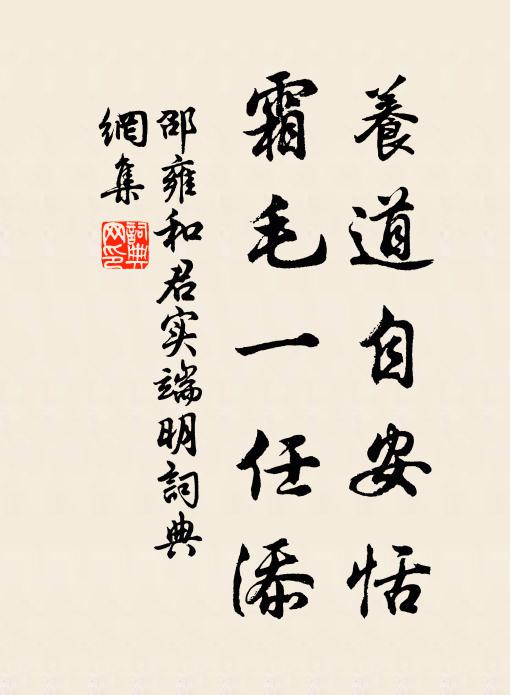 養道自安恬
霜毛一任添
邵雍和君实端明詞典
網集
詞典
网印